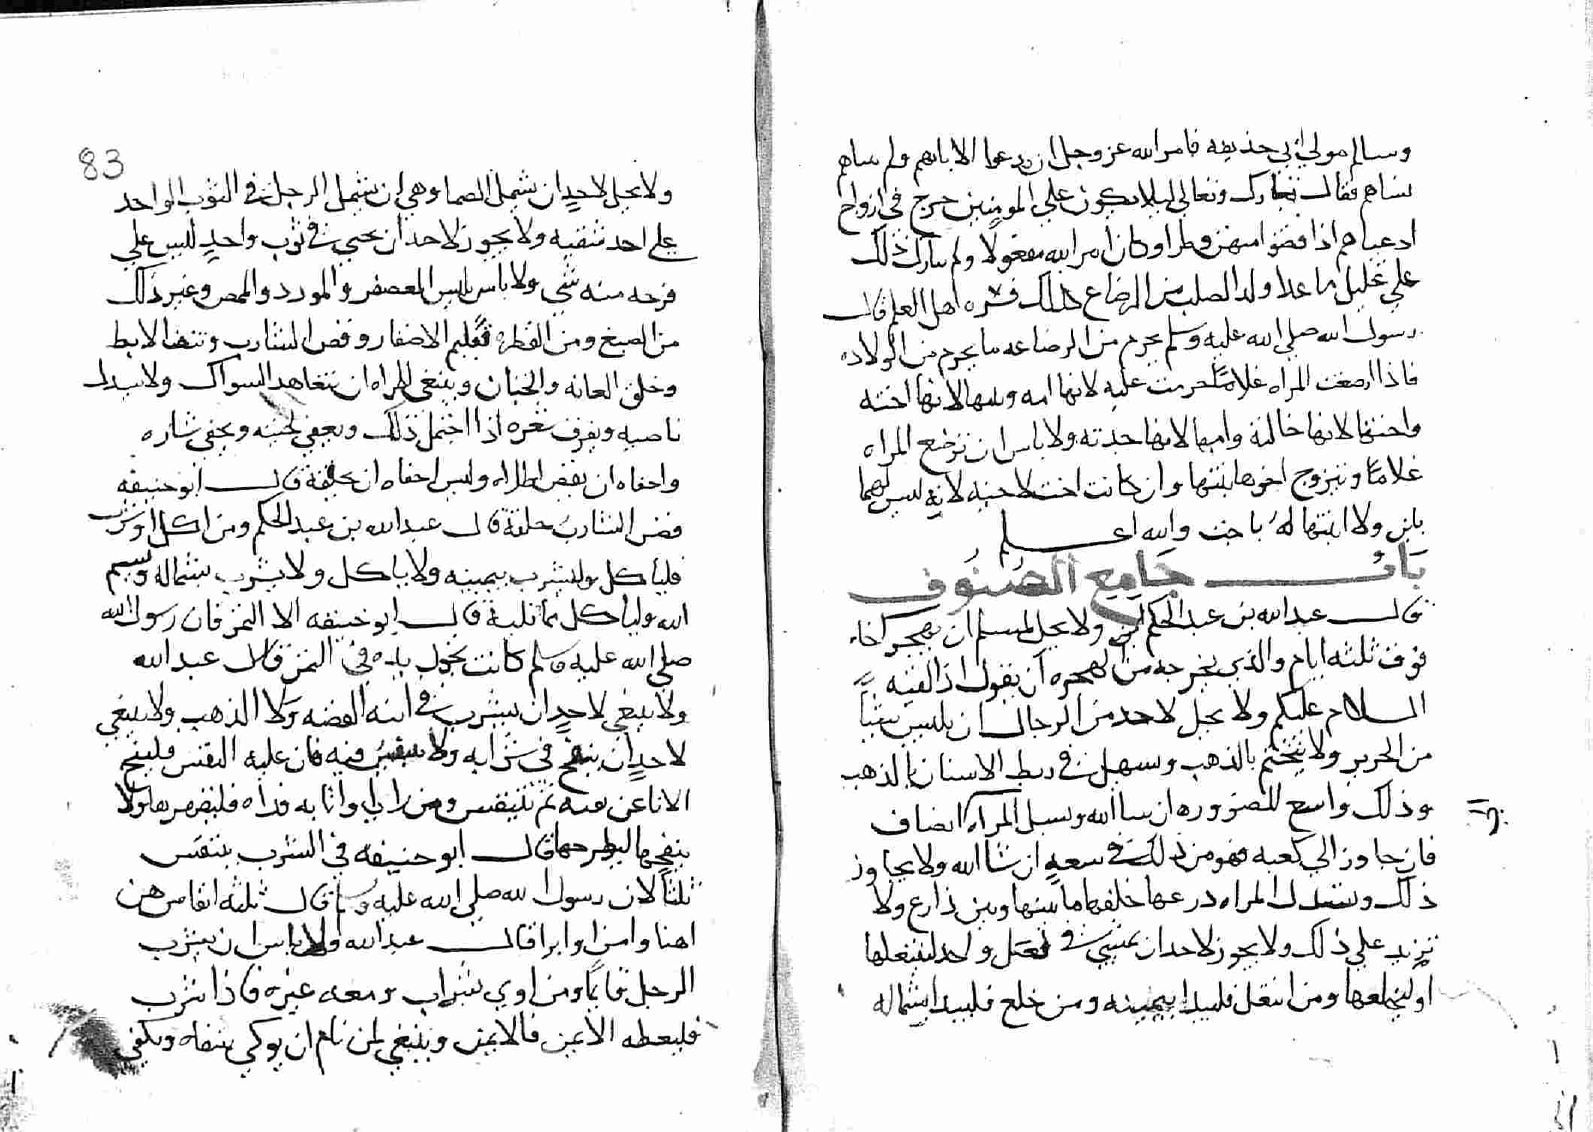 وسالم مولي ابي حذيفه فامر الله عز وجل ان يدعوا الابايهم ولم ساهم
ساهم فقال تبارك وتعالي ليلا يكون علي المومنين حرج في ازواج
ادعياهم اذا قضوا منهن وطرا وكان امر الله مفعولا ولم يبارك ذلك
علي تحليل ما عدا ولد الصلب من الرضاع كذلك فسره اهل العلم قال
رسول الله صلي الله عليه وسلم يحرم من الرضاعه ما يحرم من الولاده
فاذا ارضعت المراه غلاما حرمت عليه لانها امه وبنتها لانها اخته
واختها لانها خالته وامها لانها جدته ولا باس ان ترضع المراه
غلاما ويتزوج اخوها بنتها وان كانت اختا لاخيه لانه ليس لهما
بابن ولا ابنتها له باخت والله اعلم
باب جامع الصنوف
قال عبد الله بن عبد الحكم ولا يحل لمسلم ان يهجر اخاه
فوق ثلثه ايام والذي يخرجه من الهجره ان يقول اذا لقيه
السلام عليكم ولا يحل لاحد من الرجال ان يلبس شيا
من الحرير ولا يتختم بالذهب وسهل في ربط الاسنان بالذهب
وذلك واسع للضروره ان شا الله وسبل المراه انصاف
فان جاوز الي كعبه فهو من ذلك في سعه ان شا الله ولا يجاوز
ذلك وتسدل المراه درعها خلفها ما بينها وبين ذارع ولا
تزيد علي ذلك ولا يجوز لاحد ان يمشي في نعل واحد لينتعلها
او ليخلعها ومن انتعل فليبدا بيمينه ومن خلع فليبدا بشماله
83
ولا يحل لاحد ان يشمل الصما وهي ان يشمل الرجل في الثوب الواحد
علي احد شقيه ولا يجوز لاحد ان يحتبي في ثوب واحد ليس علي
فرجه منه شي ولا باس بلبس المعصفر والمورد والممصر وغير ذلك
من الصبغ ومن الفطره تقليم الاضفار وقص الشارب ونتف الابط
وحلق العانه والختان وينبغي للمراه ان تتعاهد السواك ولا يسدل
ناصيه ويفرق شعره اذا احتمل ذلك ويعفي لحيته ويحفي شاربه
واحفاه ان يقص اطاره وليس احفاه ان يحلقه قال ابو حنيفه
قص الشارب حلقه قال عبد الله بن عبد الحكم ومن اكل او شرب
فلياكل وليشرب بيمينه ولا ياكل ولا يشرب بشماله ويسم
الله ولياكل مما يليه قال ابو حنيفه الا التمر فان رسول الله
صلي الله عليه وسلم كانت تجول يده في التمر قال عبد الله
ولا ينبغي لاحد ان يشرب في انيه الفضه ولا الذهب ولا ينبغي
لاحد ان ينفخ في شرابه ولا يتنفس فيه فان عليه النفس فلينح
الانا عن فيه ثم يتنفس ومن راي في انايه قذاه فليهرقها ولا
ينفخها ليطرحها قال ابو حنيفه في الشرب يتنفس
ثلثا لان رسول الله صلي الله عليه وسلم قال ثلثه انفاس هن
اهنا وامرا وابرا قال عبد الله ولا باس ان يشرب
الرجل قايما ومن اوي بشراب ومعه غيره فاذا شرب
فليعطه الايمن فالايمن وينبغي لمن نام ان يوكي سقاه ويكفي